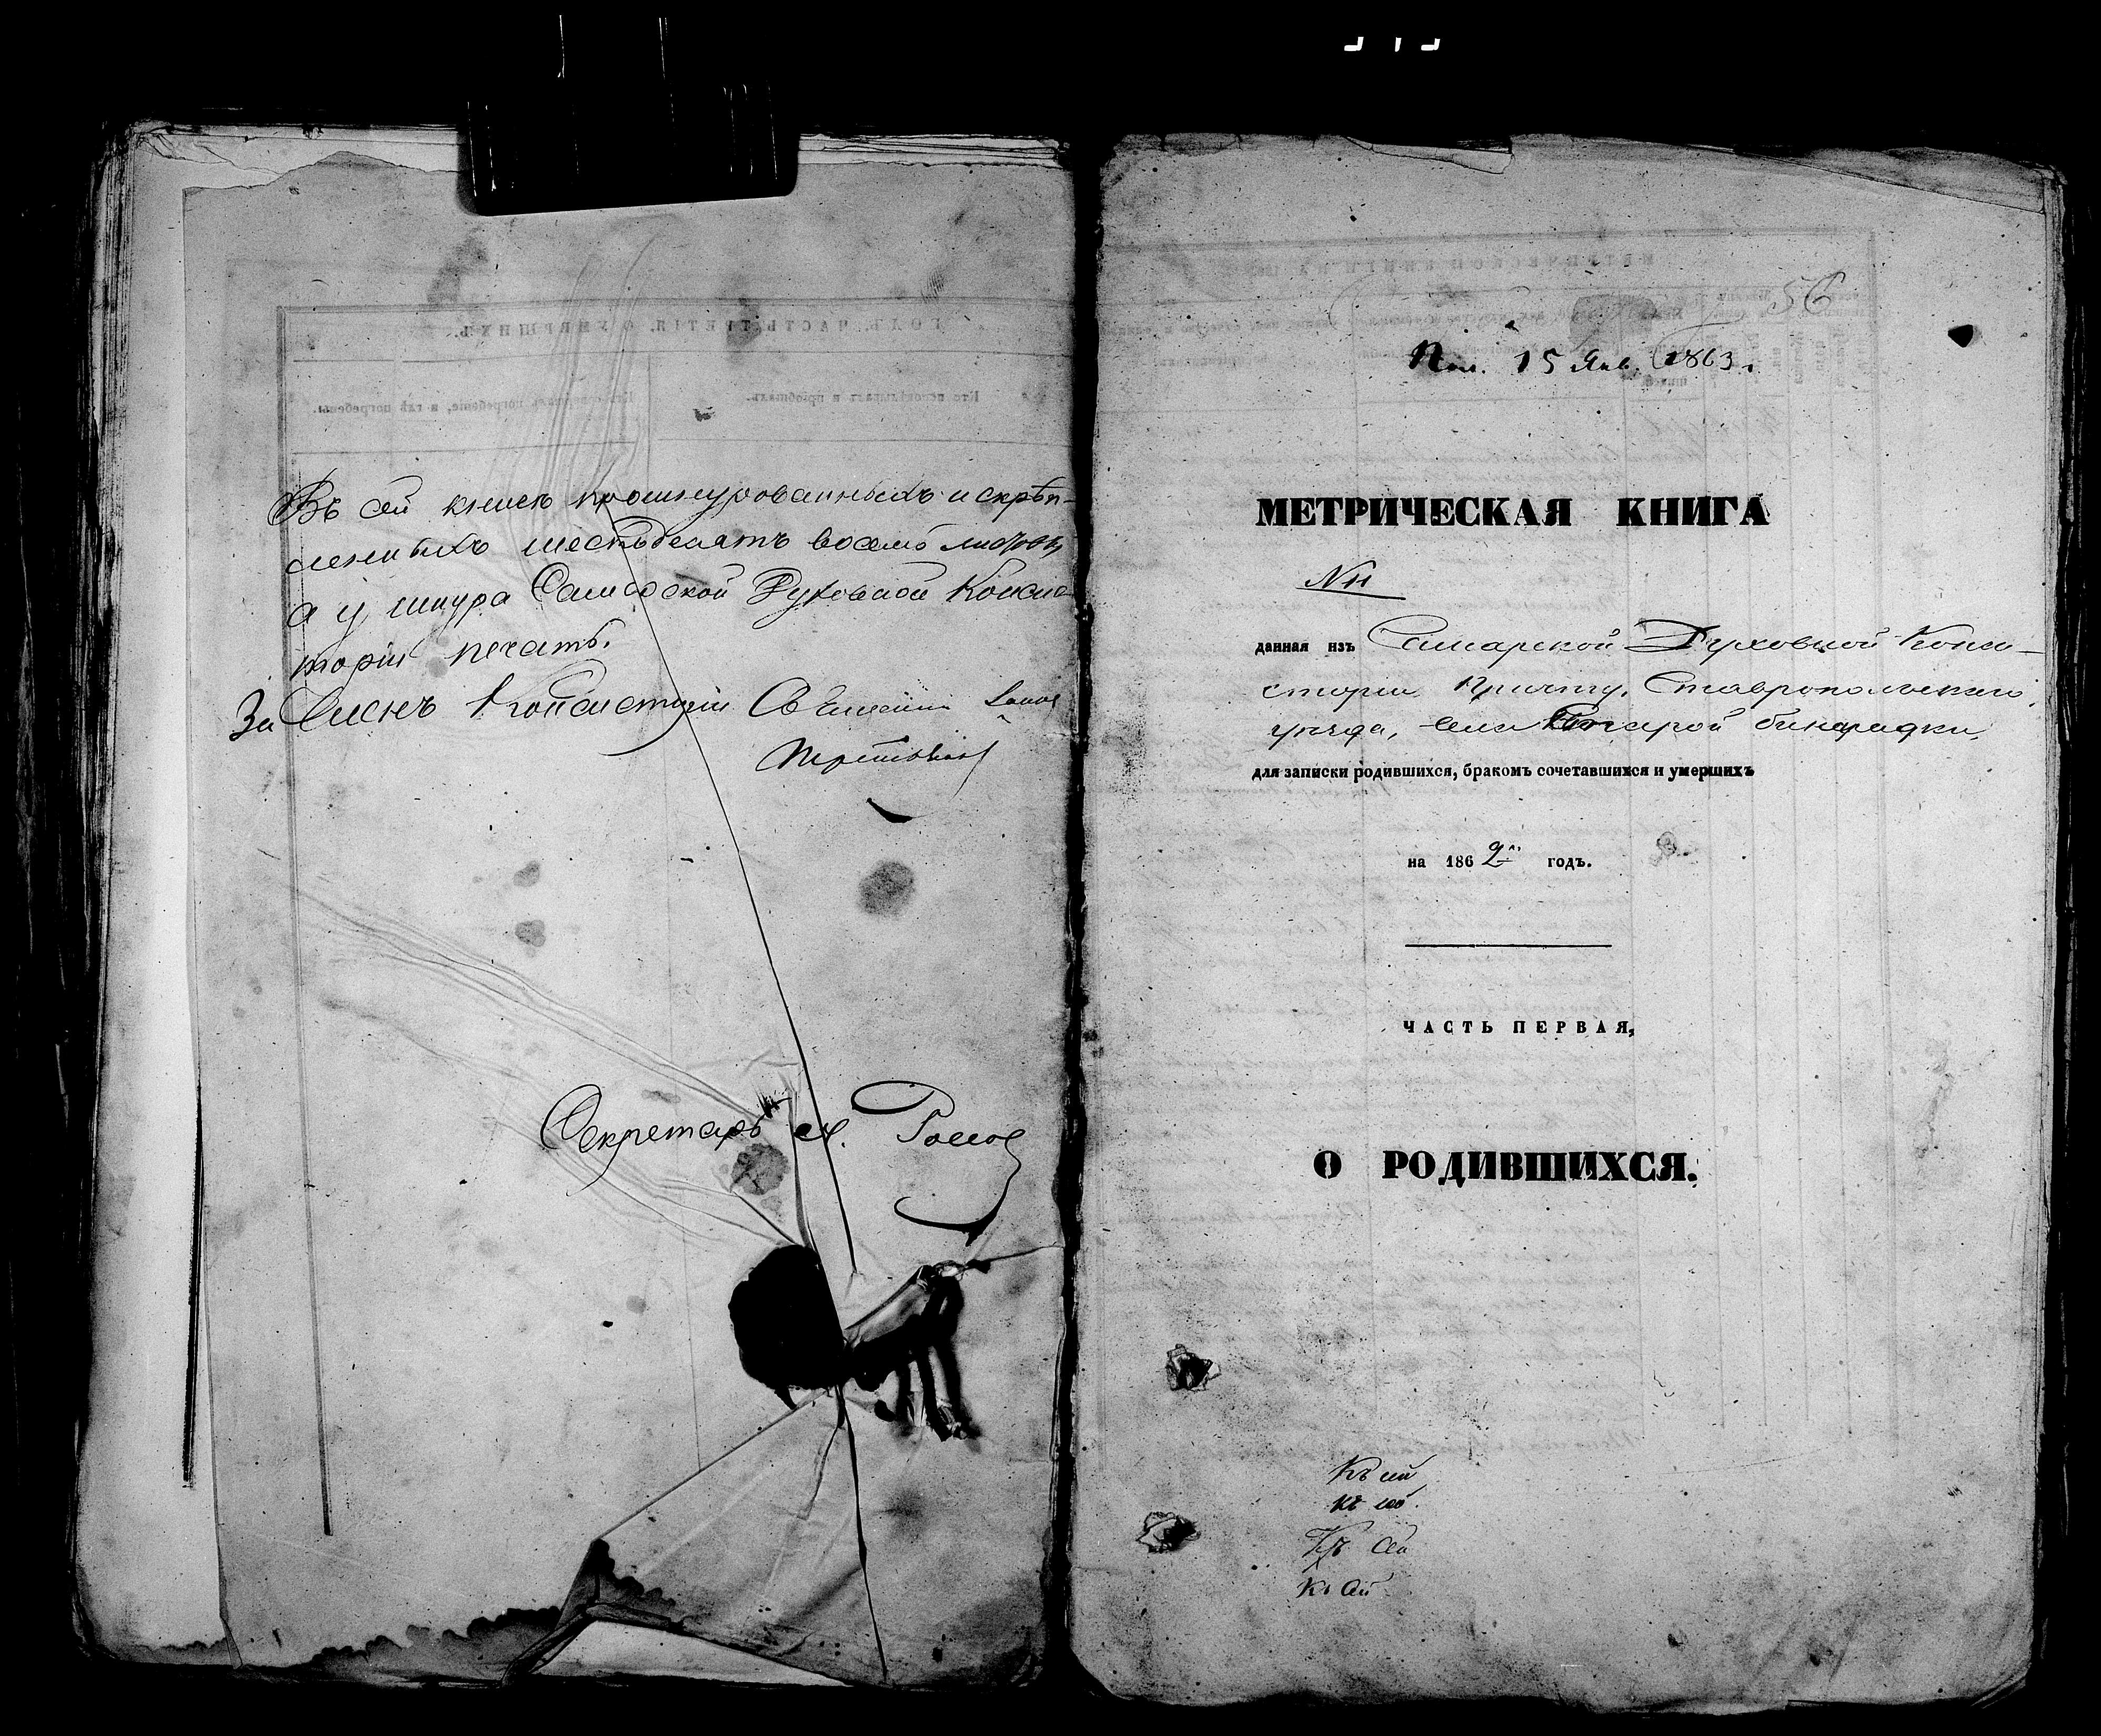 Въ сей книгѣ прошнурованныхъ и скрѣп-
ленныхъ шестьдесятъ восемь листовъ,
а у шнура Самарской Духовной Консис-
торіи печать.
За Членъ Консисторіи Священникъ
Секретарь Россов
56
Пол. 15 Янв. 1863 г.
МЕТРИЧЕСКАЯ КНИГА
данная изъ Самарской Духовной Конси-
сторіи Причту, Ставропольскаго
уѣзда, села Старой Бинарадки,
для записки родившихся, бракомъ сочетавшихся и умершихъ
на 1862 годъ.
ЧАСТЬ ПЕРВАЯ,
О РОДИВШИХСЯ.
Къ сей
Къ сей
Къ сей
Къ сей